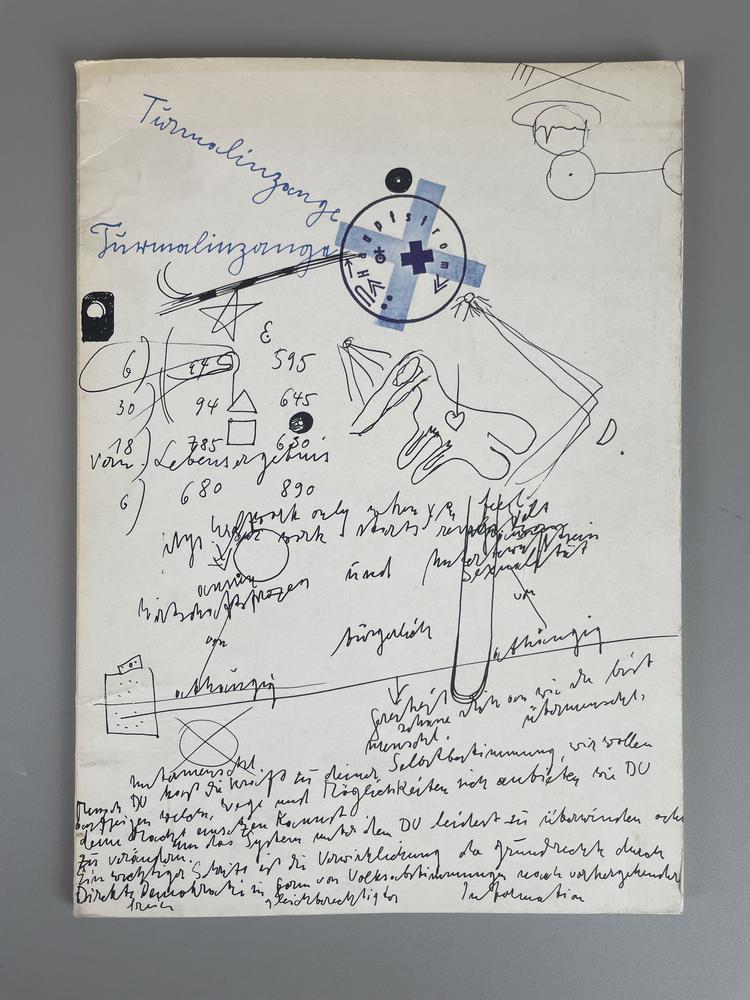 Turmalinzange
Turmalinzange
Hauptstrom
ε
6) 595
30) 94 645
18) 785 630
Vorn. Lebensergebnis
6) 680 890
only when
work starts
und
Unterbewußtsein
Sexualität
Wirtschaftsfragen
von
von
bürgerlich
abhängig
abhängig
wie du bist
übermenschl.
menschl.
Selbstbestimmung, wir wollen
untermenschl.
Mensch DU hast die Kraft zu deiner
aufzeigen welche Wege und Möglichkeiten sich anbieten wie DU
deine Macht einsetzen kannst
um das System unter dem DU leidest zu überwinden oder
zu verändern.
Ein wichtiger Schritt ist die Verwirklichung der Grundrechte durch
Direkte Demokratie in Form von Volksabstimmungen nach vorhergehender
freier gleichberechtigter Information